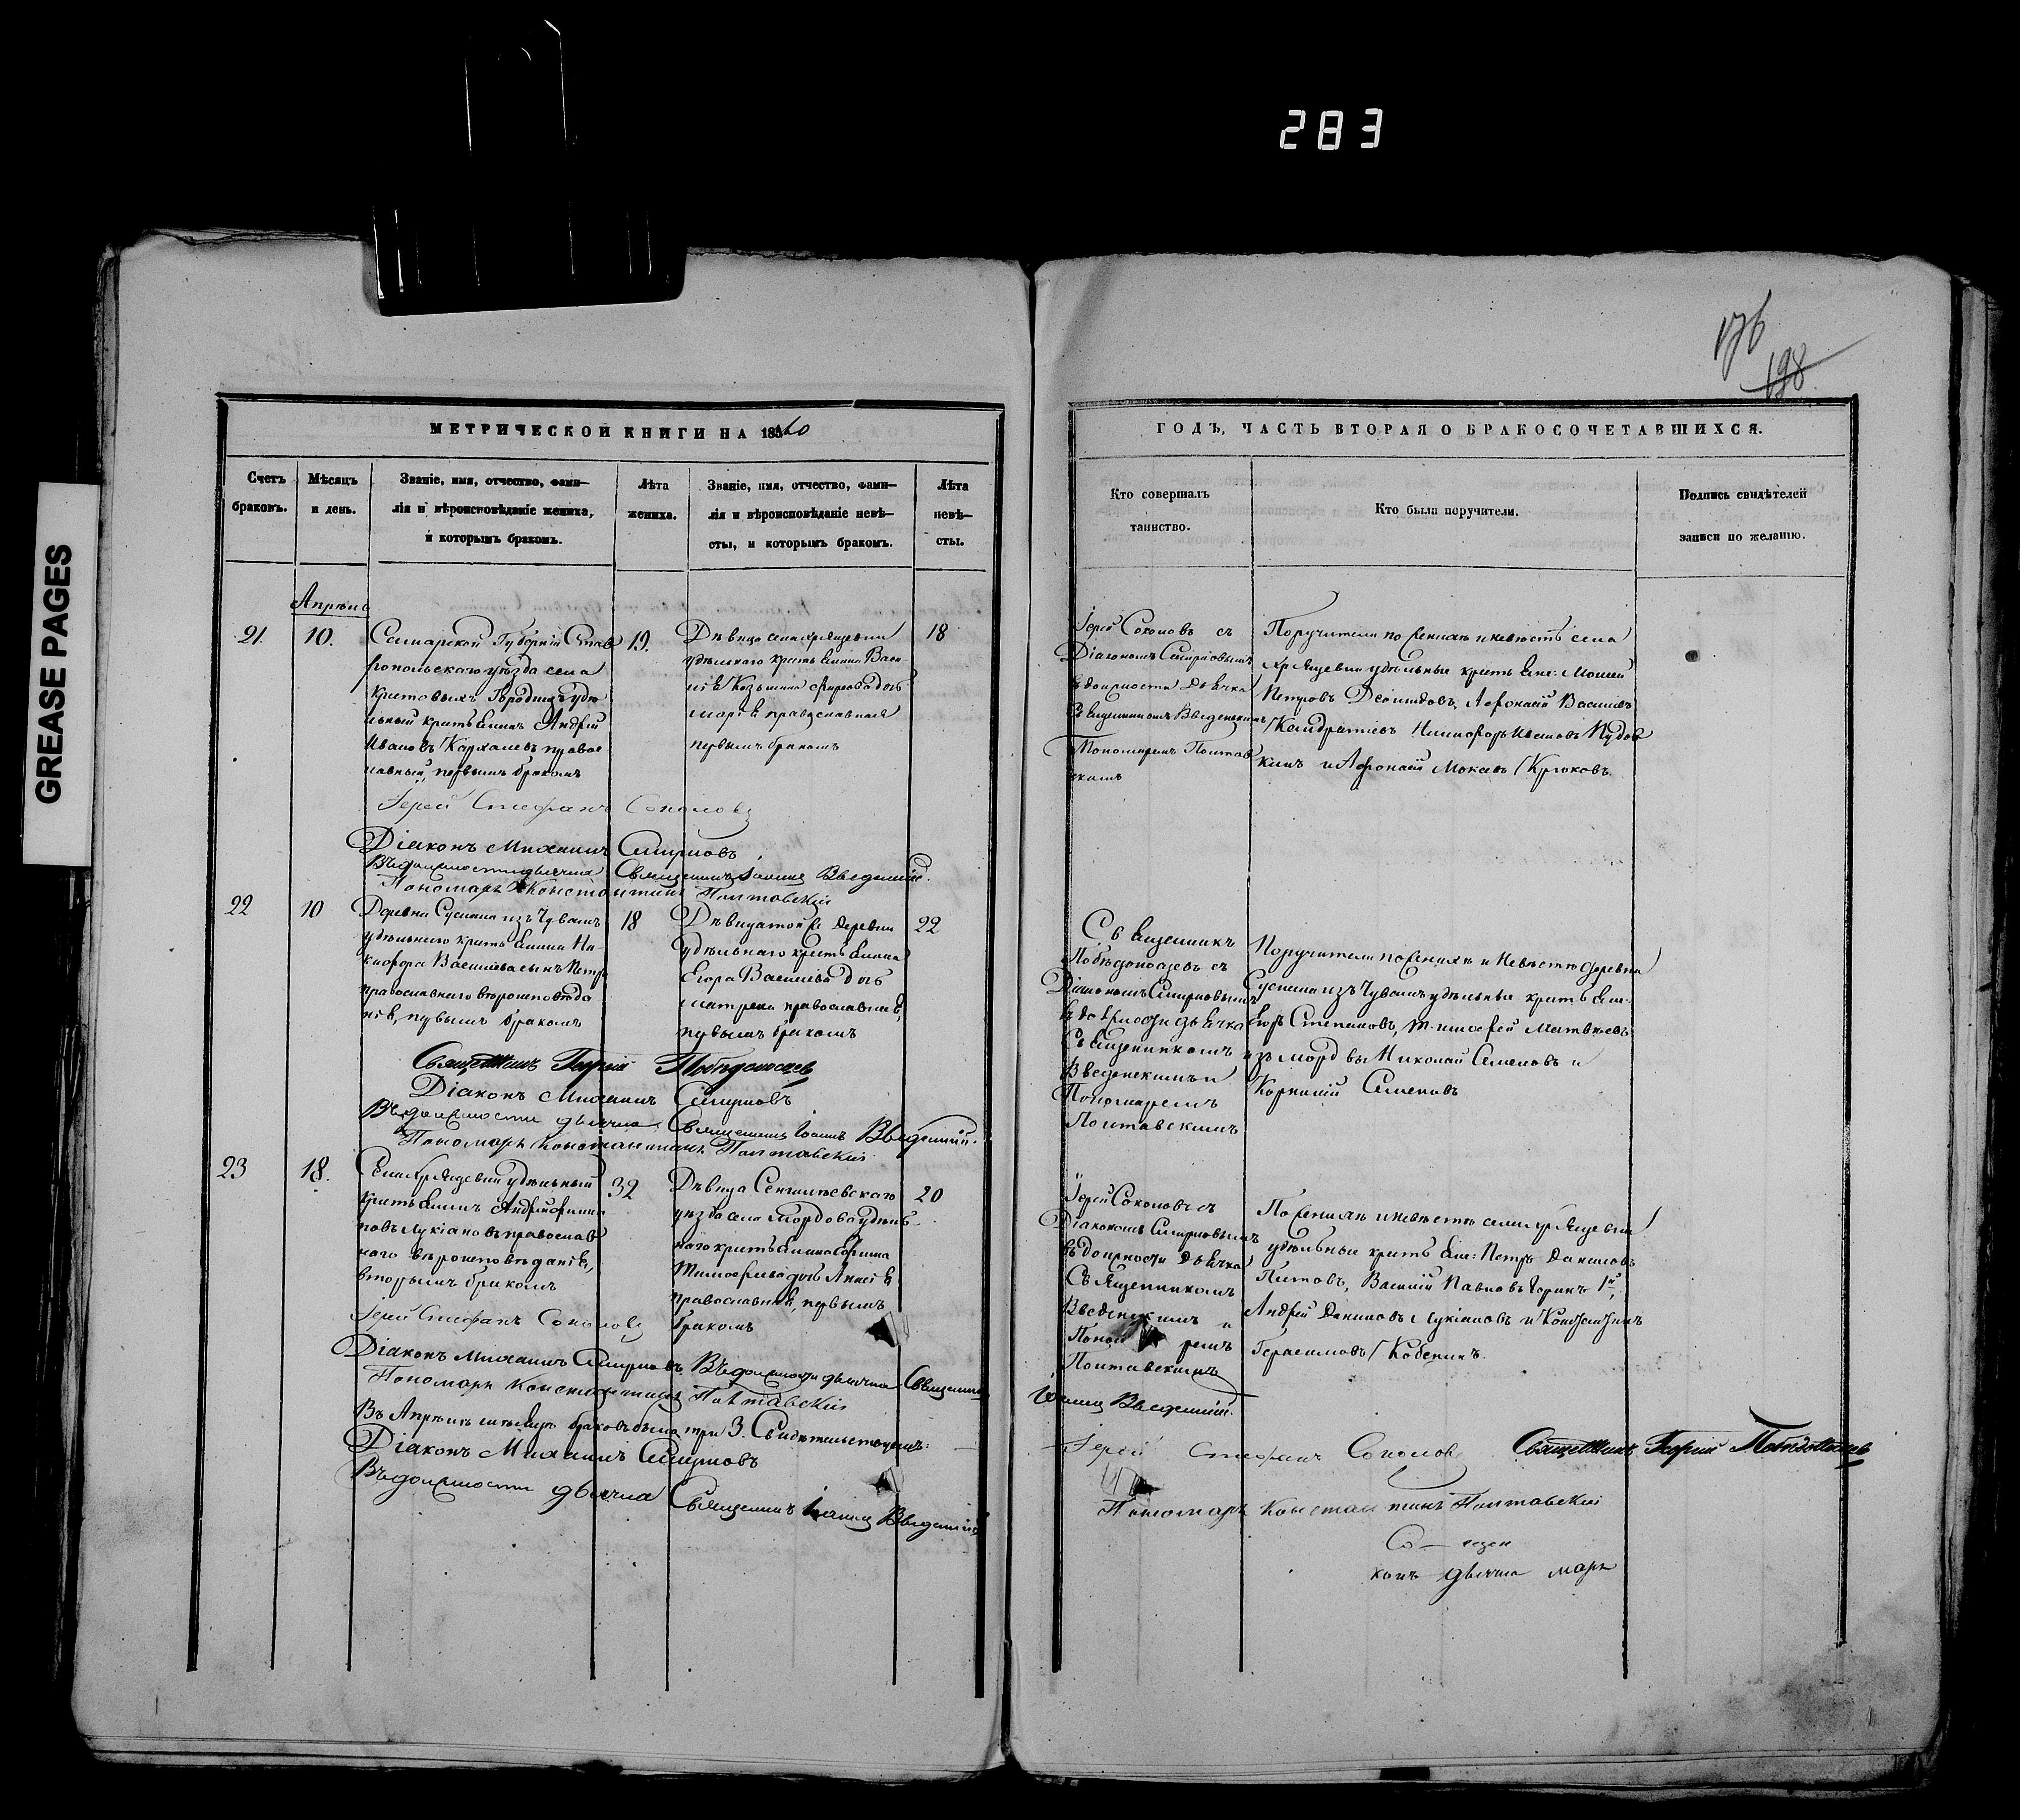 283
GREASE PAGES
176
198
МЕТРИЧЕСКОЙ КНИГИ НА 1860
Счетъ браковъ.
Мѣсяцъ и день.
Званіе, имя, отчество, фами-
лія и вѣроисповѣданіе жениха,
и которымъ бракомъ.
Лѣта
жениха.
Званіе, имя, отчество, фами-
лія и вѣроисповѣданіе невѣ-
сты, и которымъ бракомъ.
Лѣта
невѣ-
сты.
Апрѣль
21.
10.
Самарской Губерніи Став
ропольскаго уѣзда села
Городищъ удѣ
льный крестьянинъ Андрей
Ивановъ Кархалевъ правос
лавный, первымъ бракомъ
19.
Дѣвица села Хрящевки
удѣльнаго крестьянина Васи
лія Козьмина дочь
Марія православная
первымъ бракомъ
18
Іерей Стефанъ Соколовъ
Діаконъ Михаилъ Смирновъ
Въ должности дьячка Священникъ Іоаннъ Введенскій.
Пономарь Константинъ Полтавскій
22
10
Деревни Сускана изъ Чувашъ
удѣльнаго крестьянина Ни
кифора Васильева сынъ Петръ
православнаго вѣроисповѣда
нія, первымъ бракомъ
18
Дѣвица той же деревни
удѣльнаго крестьянина
Егора Васильева дочь
Матрена православная,
первымъ бракомъ
22
Священникъ Георгій Побѣдоносцевъ
Діаконъ Михаилъ Смирновъ
Въ должности дьячка Священникъ Іоаннъ Введенскій.
Пономарь Константинъ Полтавскій
23
18.
Села Хрящевки удѣльный
крестьянинъ Андрей
Лукіановъ православ
наго вѣроисповѣданія,
вторымъ бракомъ
32
Дѣвица Сенгилѣевскаго
уѣзда села Мордова удѣль
наго крестьянина
Тимофеева дочь
православная, первымъ
бракомъ
20
Іерей Стефанъ Соколовъ
Діаконъ Михаилъ Смирновъ. Въ должности дьячка Священникъ
Пономарь Константинъ Полтавскій
Въ Апрѣлѣ мѣсяцѣ браковъ было три 3. Свидѣтельствуемъ:
Діаконъ Михаилъ Смирновъ
Въ должности дьячка Священникъ Іоаннъ Введенскій
ГОДЪ, ЧАСТЬ ВТОРАЯ О БРАКОСОЧЕТАВШИХСЯ.
Кто совершалъ
таинство.
Кто были поручители.
Подпись свидѣтелей
записи по желанію.
Іерей Соколовъ съ
Діакономъ Смирновымъ
въ должности дьячка
Священникомъ Введенскимъ
Пономаремъ Полтав
скимъ
Поручители по женихѣ и невѣстѣ села
Хрящевки удѣльные крестьяне:
Петровъ Афонасій Васильевъ
Кондратьевъ Никифоръ Ивановъ Пудов
кинъ и Афонасій Крюковъ.
Священникъ
Побѣдоносцевъ съ
Діакономъ Смирновымъ
въ должности дьячка
Священникомъ
Введенскимъ и
Пономаремъ
Полтавскимъ
Поручители по женихѣ и невѣстѣ деревни
Сускана изъ Чувашъ удѣльные крестьяне:
Егоръ Степановъ, Тимофей Матвѣевъ
изъ мордвы Николай Семеновъ и
Корнилій Семеновъ
Іерей Соколовъ съ
Діакономъ Смирновымъ
въ должности дьячка
Священникомъ
Введенскимъ и
Пономаремъ
Полтавскимъ
По женихѣ и невѣстѣ села Хрящевки
удѣльные крестьяне: Петръ Даниловъ
Василій Павловъ
Андрей Даниловъ Лукіановъ и Константинъ
Герасимовъ
Іоаннъ Введенскій.
Іерей Стефанъ Соколовъ Священникъ Георгій Побѣдоносцевъ
Пономарь Константинъ Полтавскій
дьячка